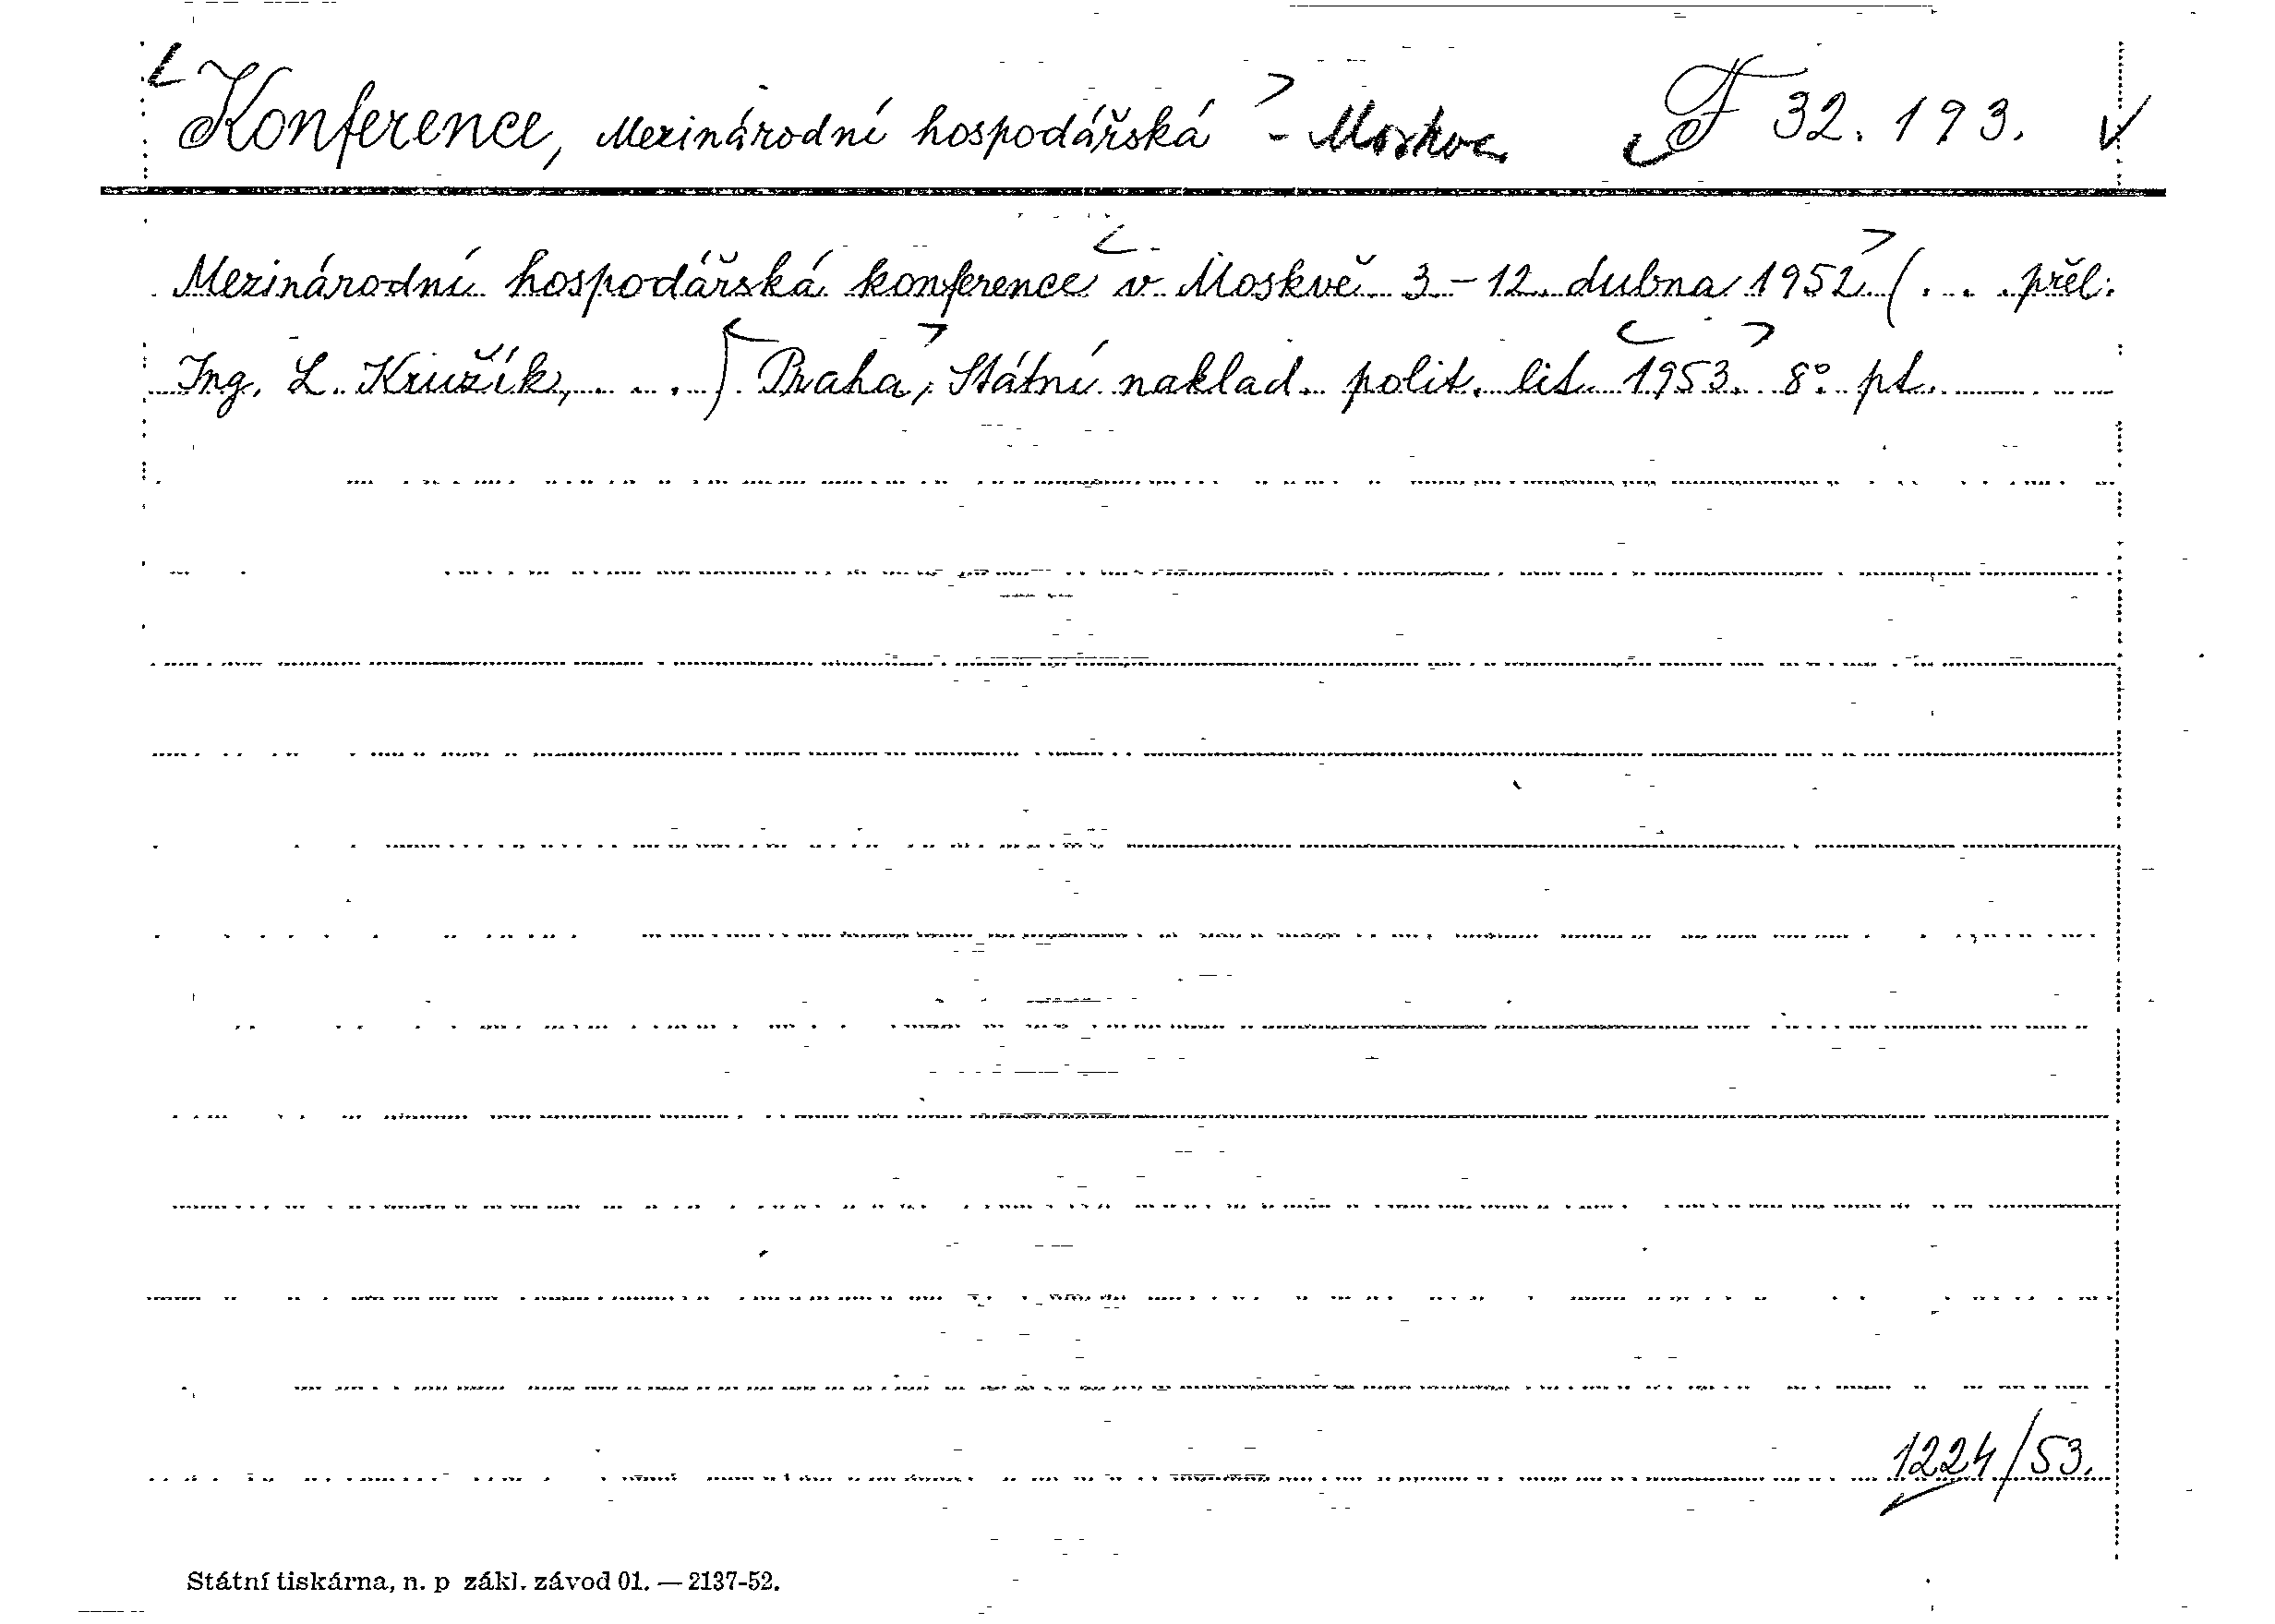 Konference, Mezinárodní hospodářská - Moskva F 32.193.
Mezinárodní hospodářská konference v Moskvě 3.-12. dubna 1952 (... přel.
Ing. L. Kružík, ....) Praha, Státní naklad. polit. lit. 1953. 8° pt.
1224/53.
Státní tiskárna, n. p zákl. závod 01. — 2137-52.